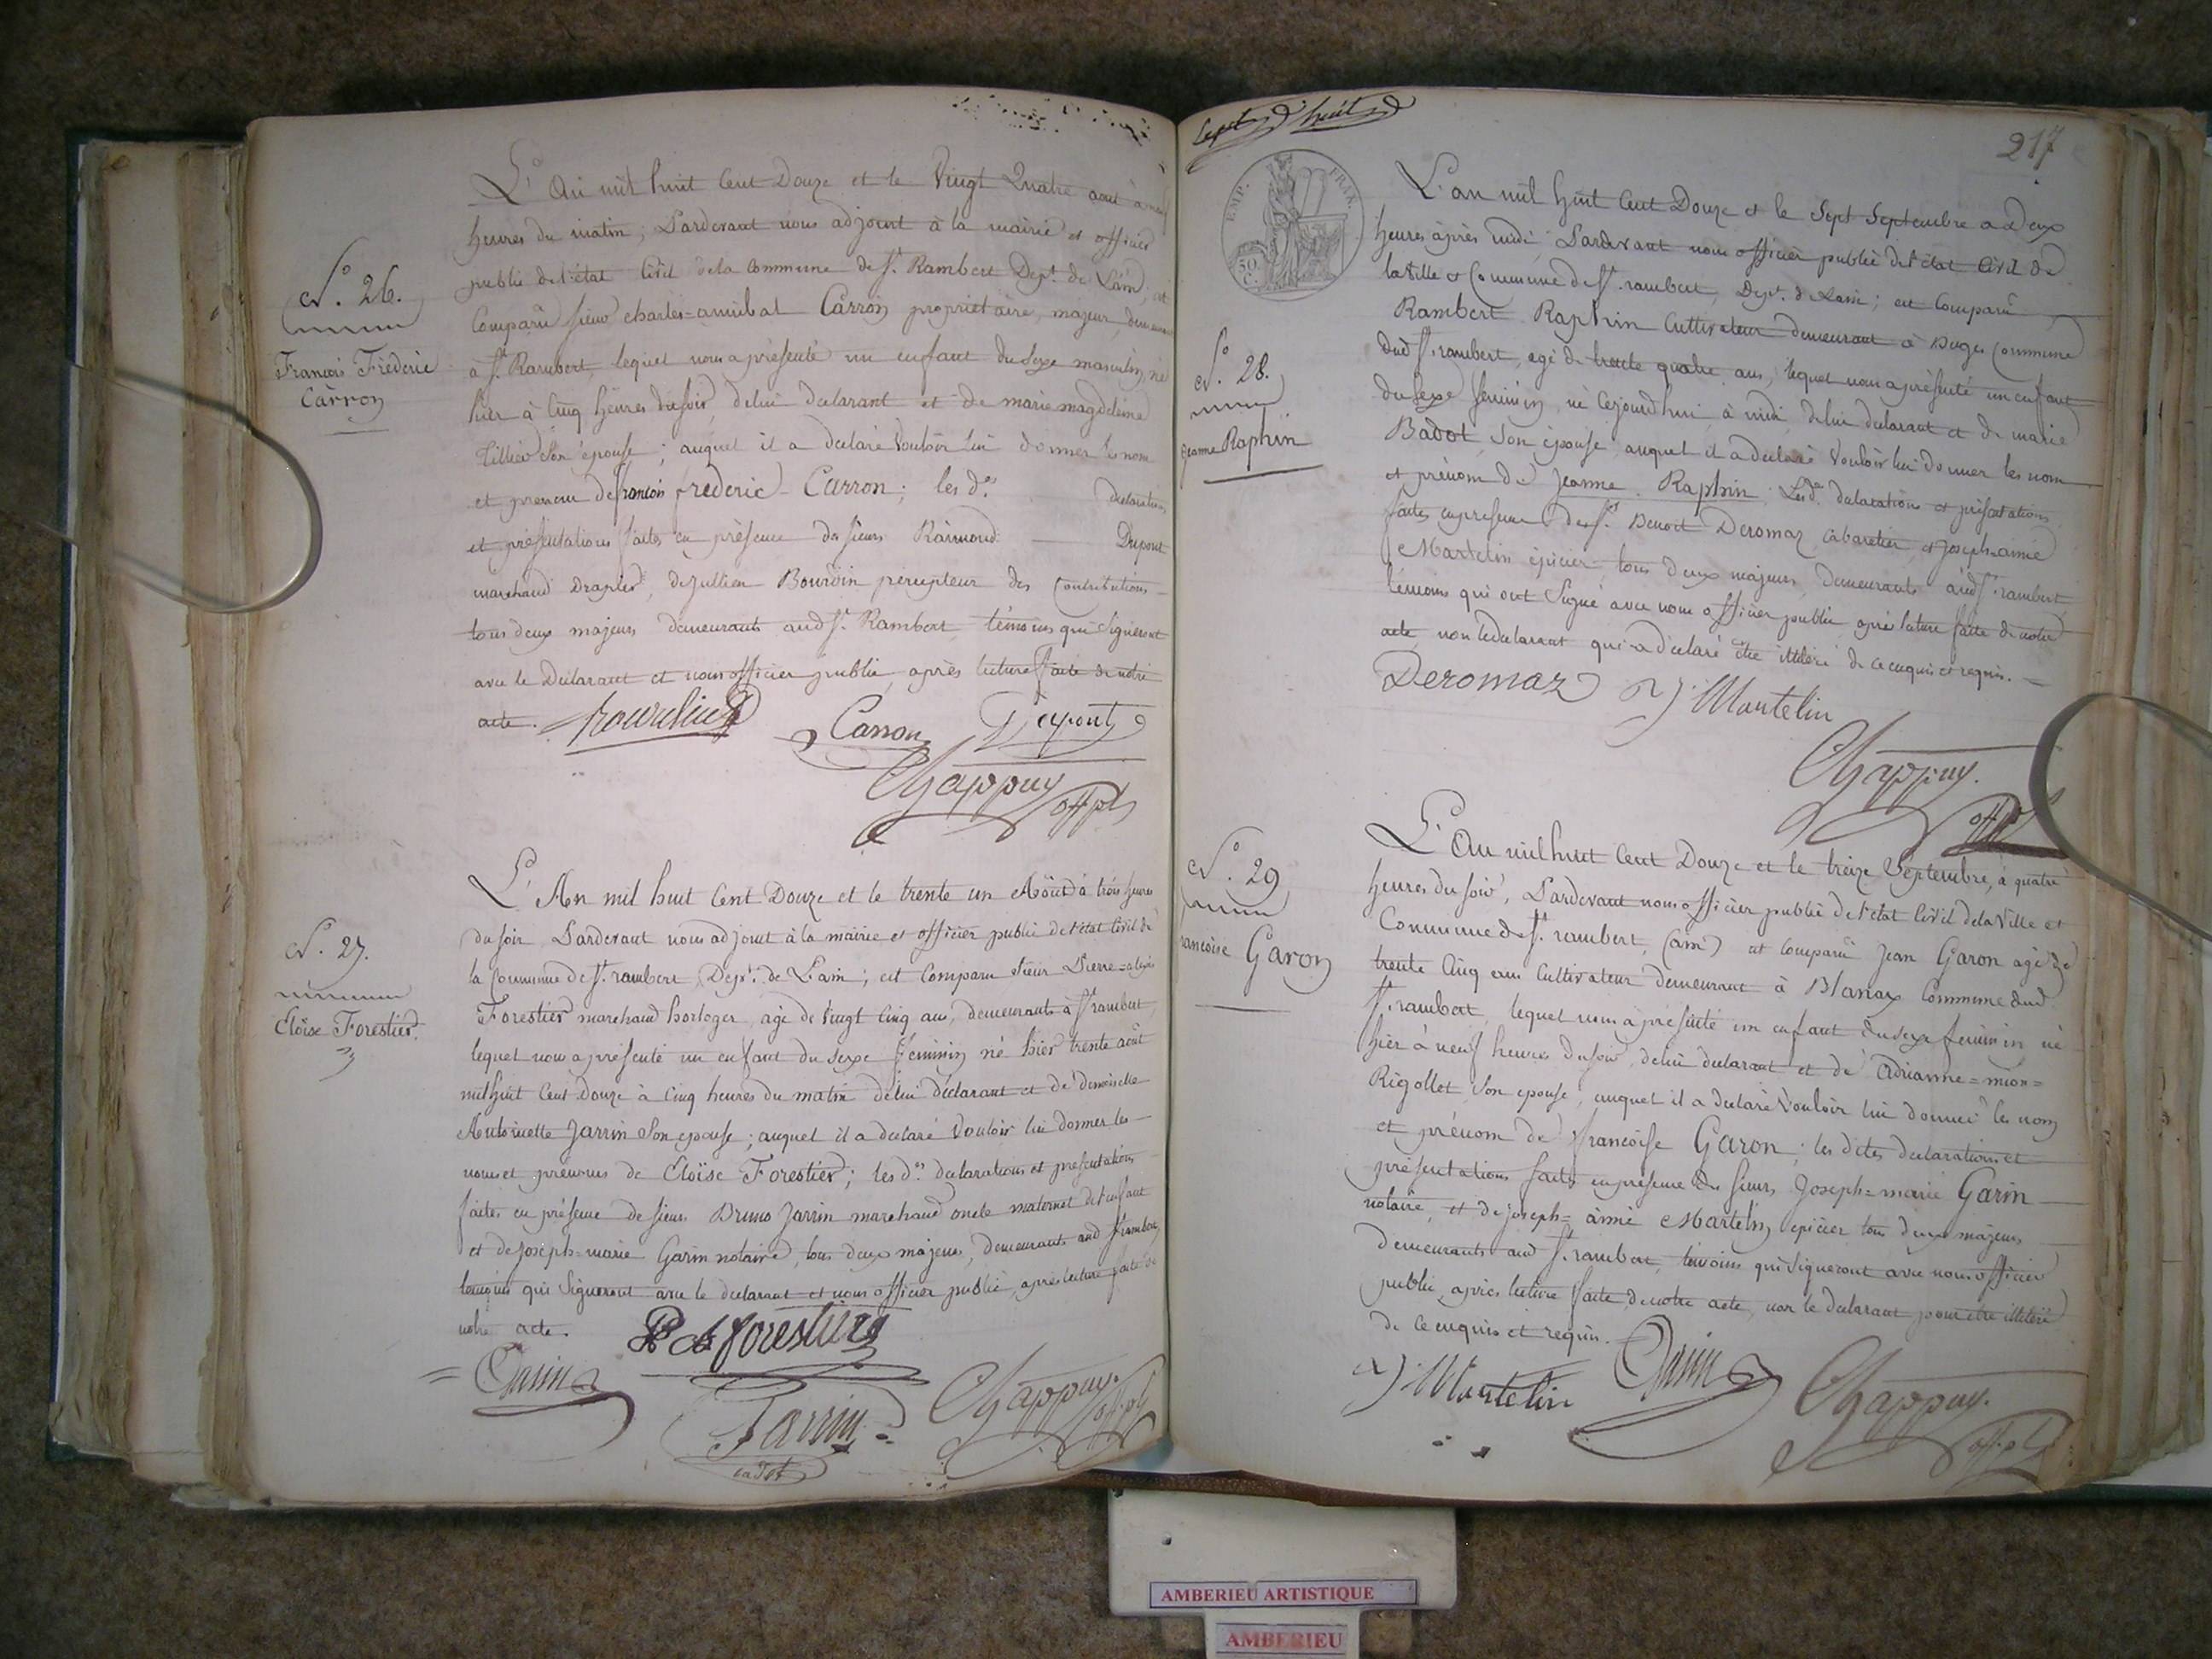 N.° 26.
François Fréderic
Carron
L'An mil huit Cent Douze et le Vingt Quatre aout à neuf
heures du matin; Pardevant nous adjoint à la mairie et officier
public de l'état Civil de la Commune de St. Rambert Dept. de L'ain, est
Comparu sieur charles=annibal Carron propriétaire, majeur, demeurant
à St. Rambert, lequel nous a présenté un enfant du sexe masculin, né
hier à Cinq heures du soir de lui declarant et de marie magdeleine
son épouse; auquel il a declaré Vouloir lui donner les nom
et prenom de françois frederic Carron; les des. declarations
et présentations faites en présence des sieurs Raimond Dupont
marchand Drapier, de Jullien Bourdin percepteur des Contributions
tous deux majeurs demeurants aud St. Rambert, témoins qui signeront
avec le Déclarant et nous officier public, après lecture faite de notre
acte.
Carron Dupont
Chappuy
off. pb
N.° 27.
Eloïse Forestier.
L'An mil huit Cent Douze et le trente un Août à trois heures
du soir Pardevant nous adjoint à la mairie et officier public de l'état Civil de
la Commune de St. rambert, Dept. de L'ain; est Comparu sieur Pierre=alexis
Forestier marchand horloger, agé de Vingt Cinq ans, demeurants à St. rambert,
lequel nous a présenté un enfant du sexe féminin né hier trente août
mil huit Cent Douze à Cinq heures du matin de lui déclarant et de demoiselle
Antoinette Jarrin son epouse; auquel il a declaré Vouloir lui donner les
noms et prénoms de Eloïse Forestier; les des. declarations et presentations
faites en présence de sieurs Bruno Jarrin marchand oncle maternel de l'enfant
et de Joseph=marie Garin notaire, tous deux majeurs, demeurants aud St. rambert,
temoins qui Signeront avec le declarant et nous officier public, après lecture faite de
notre acte.
P A forestier
Garin
Jarrin
cadet
Chappuy. off. pb
217
EMP. FRAN.
50 C.
N.° 28.
Jeanne Raphin
L'an mil huit Cent Douze et le Sept Septembre a deux
heures après midi, Pardevant nous officier public de l'état Civil de
la Ville et Commune de St. rambert, Dept. de Lain; est Comparu
Rambert Raphin Cultivateur demeurant à Buges Commune
dud St. rambert, agé de trente quatre ans, lequel nous a présenté un enfant
du sexe féminin né Cejourd'hui à midi de lui declarant et de marie
Badot, son épouse, auquel il a declaré Vouloir lui donner les nom
et prénom de Jeanne Raphin Lesdes. declarations et présentations
faites en presence des Srs. Benoit Deromaz Cabaretier, et Joseph=aimé
Martelin épicier tous deux majeurs demeurants aud St. rambert,
témoins qui ont Signé avec nous officier public, après lecture faite de notre
acte, non le declarant qui a déclaré être illitéré de ce enquis et requis.
Deromaz J. Martelin
Chappuy.
off. pb
N.° 29
françoise Garon
L'An mil huit Cent Douze et le treize Septembre, à quatre
heures du soir, Pardevant nous officier public de l'état Civil de la Ville et
Commune de St. rambert, (ain) est Comparu Jean Garon agé de
trente Cinq ans Cultivateur demeurant à Blanaz Commune dud
St. rambert, lequel nous à présenté un enfant du sexe féminin né
hier à neuf heures du soir, de lui declarant et de Adrianne=mion=
Rigollet son epouse, auquel il a declaré Vouloir lui donner les nom
et prénom de françoise Garon; les dites declarations et
présentations faites en présence des sieurs Joseph=marie Garin
notaire, et de joseph=aimé Martelin epicier tous deux majeurs
demeurants aud St. rambert, témoins qui signeront avec nous officier
public, après lecture faite de notre acte, non le declarant pour être illitéré
de ce enquis et requis.
J. Martelin Garin Chappuy.
off. pb
AMBERIEU ARTISTIQUE
AMBERIEU